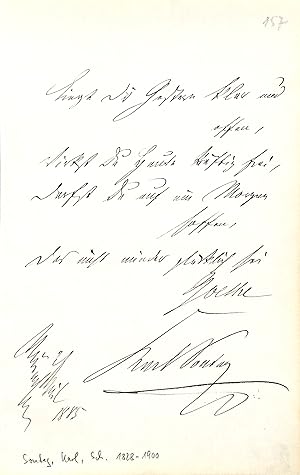 157
Liegt dir Gestern klar und
offen,
Wirkst du Heute kräftig frei,
Darfst du auf ein Morgen
hoffen,
Das nicht minder glücklich sei
Goethe
Karl Sontag
1885
Sontag, Karl, Sch. 1828-1900